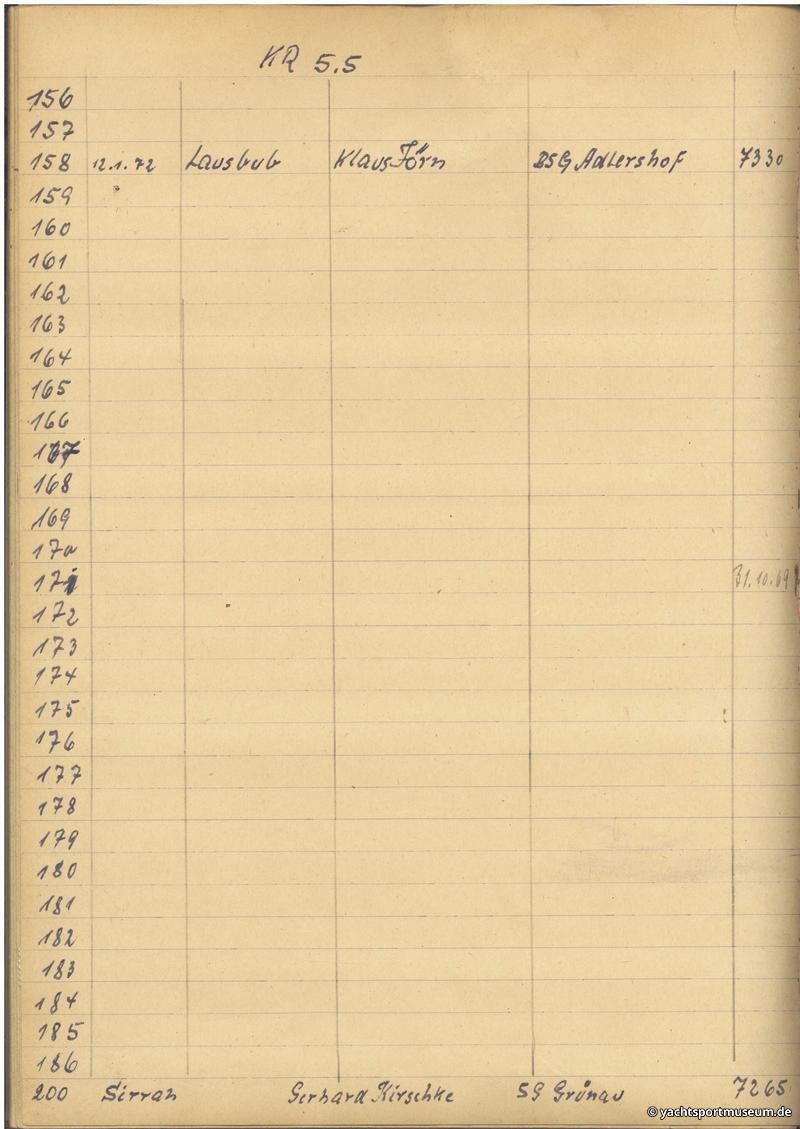 KR 5.5
156
157
158 12.1.72 Lausbub Klaus Jörn BSG Adlershof 7330
159
160
161
162
163
164
165
166
167
168
169
170
171 31.10.69
172
173
174
175
176
177
178
179
180
181
182
183
184
185
186
200 Gerhard Kirschke SG Grünau 7265
© yachtsportmuseum.de